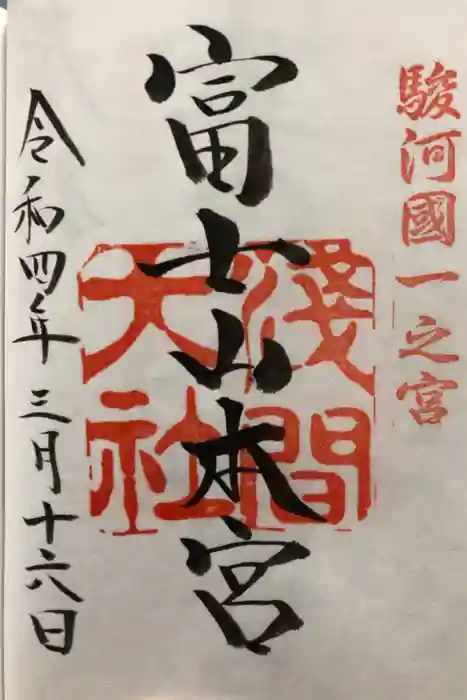 駿河國一之宮
富士山本宮
淺間
大社
令和四年三月十六日